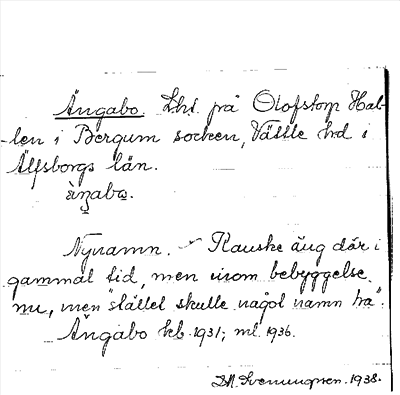 Ängabo. Lht. på Olofstorp Hal-
-len i Bergum socken, Vättle hd i
Älfsborgs län.
àŋabo.
Nynamn. Kanske äng där i
gammal tid, men inom bebyggelse
nu, men "stället skulle något namn ha".
Ängabo kb. 1931; ml. 1936.
D.A. Svenungsson. 1938.